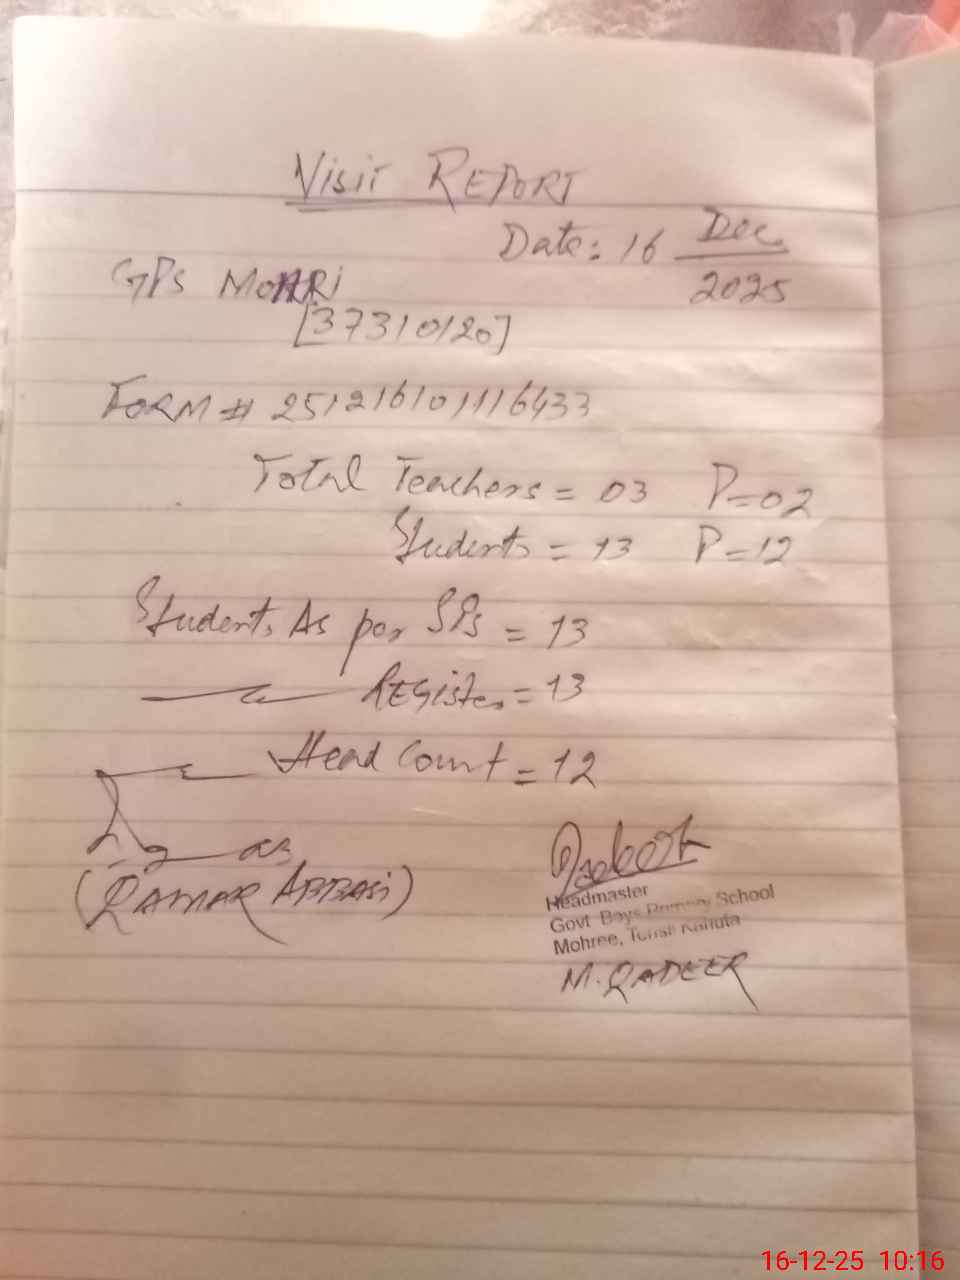 Visit REPORT
Date: 16 Dec 2025
GPS MOHRI
[37310120]
FORM # 251216101116433
Total Teachers = 03 P=02
Students = 13 P=12
Students As per SPs = 13
Register = 13
Head Count = 12
(QAMAR ABBASI)
Headmaster
Govt Boys Primary School
Mohree, Tehsil Kahuta
M. QADEER
16-12-25 10:16